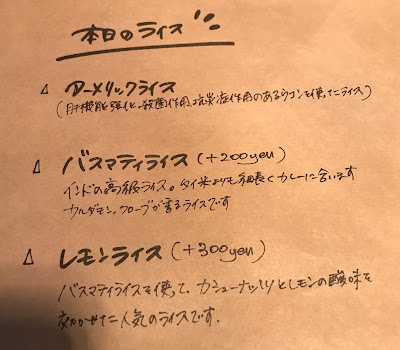 本日のライス
ターメリックライス
(肝機能強化、殺菌作用、抗炎症作用のあるウコンを使ったライス)
バスマティライス (+200yen)
インドの高級ライス。タイ米よりも細長くカレーに合います
カルダモン、クローブが香るライスです
レモンライス (+300yen)
バスマティライスを使って、カシューナッツとレモンの酸味を
効かせた人気のライスです。